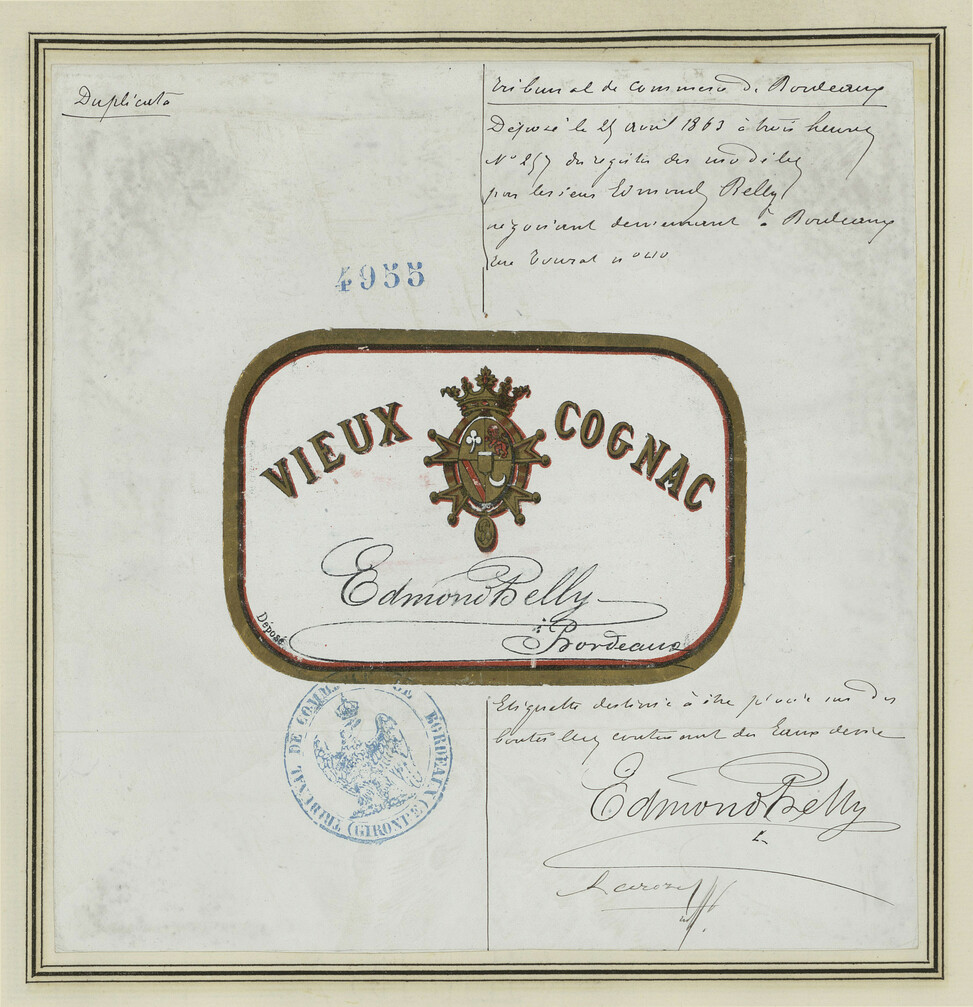 Duplicata
Tribunal de Commerce de Bordeaux
Déposé le 25 avril 1863 à trois heures
No 257 du registre des modèles
par le sieur Edmond Belly
négociant demeurant à Bordeaux
rue
4955
VIEUX COGNAC
Edmond Belly
à Bordeaux
Déposé
Etiquette destinée à être placée sur des
bouteilles contenant des Eaux de vie
TRIBUNAL DE COMMERCE DE BORDEAUX (GIRONDE)
Edmond Belly